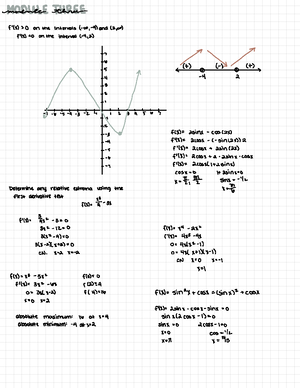 MODULE THREE
f'(x) > 0 on the intervals (-∞, -4) and (2, ∞)
f'(x) < 0 on the interval (-4, 2)
(+) (-) (+)
-4 2
f(x) = 2sinx - cos(2x)
f'(x) = 2cosx - (-sin(2x)) 2
f'(x) = 2cosx + 2sin(2x)
f'(x) = 2cosx + 2 · 2sinx · cosx
f'(x) = 2cosx (1 + 2sinx)
cosx = 0 1 + 2sinx = 0
sinx = -1/2
Determine any relative extrema using the
first derivative test
8(x-2)(x+2) = 0
CN: x = 2 x = -2
f(x) = x⁴ - 2x²
f'(x) = 4x³ - 4x
0 = 4x(x²-1)
0 = 4x(x+1)(x-1)
CN: x = 0 x = -1
x = 1
0 = 3x(x-2)
x = 0 x = 2
absolute maximum: at x = 4
absolute minimum: -4 at x = 2
f(x) = sin²x + cosx = (sinx)² + cosx
f'(x) = 2sinx · cosx - sinx = 0
sinx (2cosx - 1) = 0
sinx = 0 2cosx - 1 = 0
x = 0